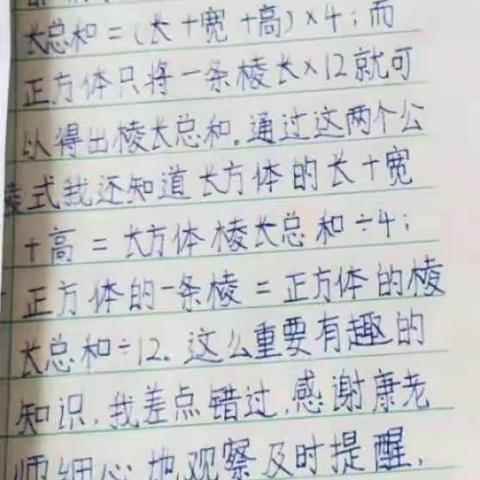 长总和=(长+宽+高)×4;而
正方体只将一条棱长×12就可
以得出棱长总和.通过这两个公
式我还知道长方体的长+宽
+高=长方体棱长总和÷4;
正方体的一条棱=正方体的棱
长总和÷12.这么重要有趣的
知识,我差点错过,感谢康老
师细心地观察及时提醒,